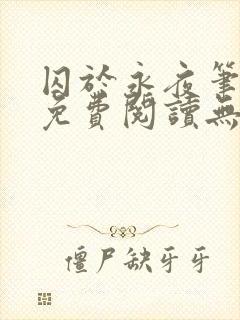 囚於永夜筆
免費閱讀無
僵尸缺牙牙